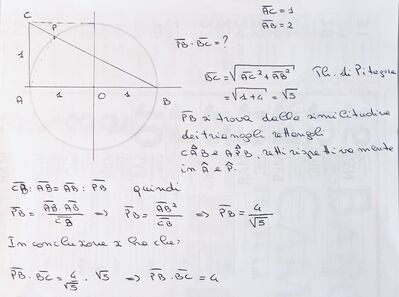 AC = 1
AB = 2
C
P
PB · BC = ?
1
BC = √(AC² + AB²) Th. di Pitagora
= √(1+4) = √5
A 1 O 1 B
PB si trova dalla similitudine
dei triangoli rettangoli
CÂB e AP̂B, retti rispettivamente
in Â e P̂.
CB : AB = AB : PB quindi
PB = AB · AB / CB => PB = AB² / CB => PB = 4 / √5
In conclusione si ha che:
PB · BC = 4/√5 · √5 => PB · BC = 4